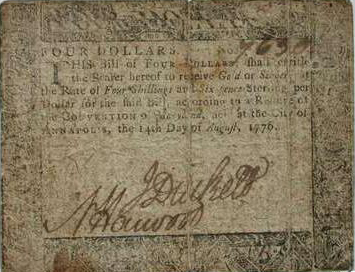 FOUR DOLLARS. No. 7630
THIS Bill of FOUR DOLLARS, shall entitle
the Bearer hereof to receive Gold or Silver at
the Rate of Four Shillings and Six-pence Sterling per
Dollar for the said Bill, according to a Resolve of
the CONVENTION of Maryland, held at the City of
ANNAPOLIS, the 14th Day of August, 1776.
J Duckett
N Harwood